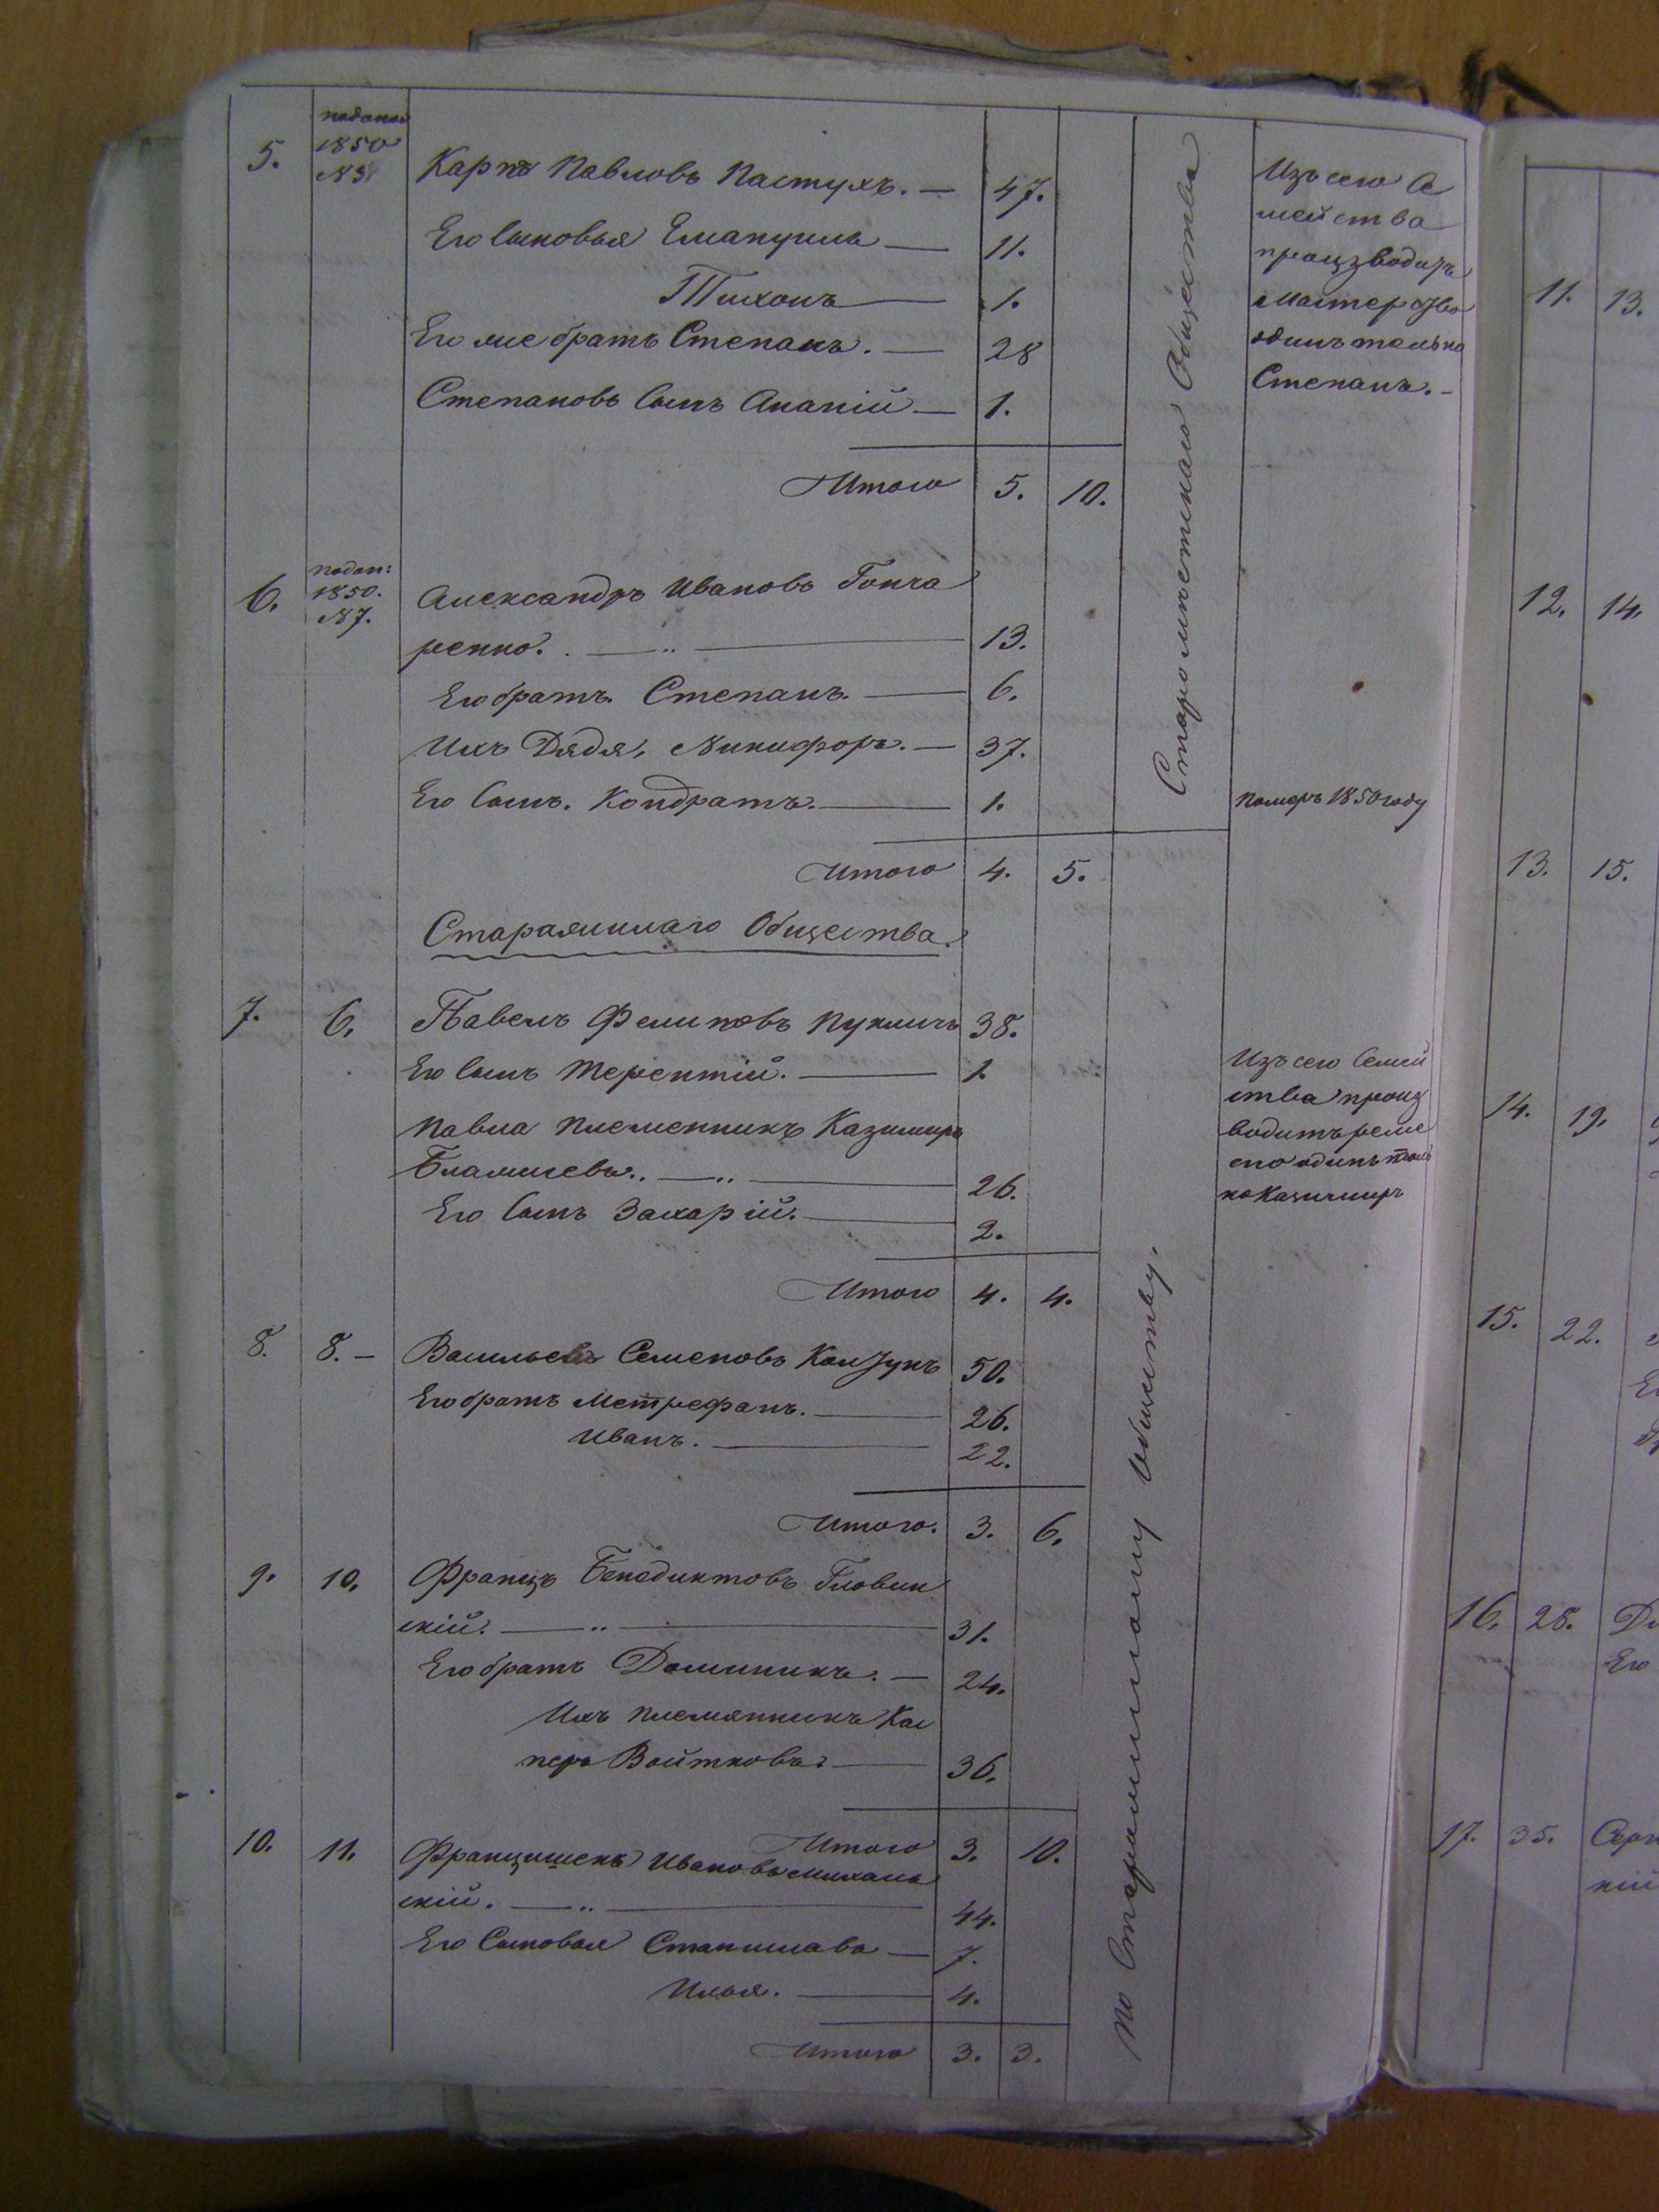 5. 1850 Карпъ Павловъ Пастухъ. — 47.
Его Сыновья Емануилъ — 11.
Тихонъ — 1.
Его же братъ Степанъ. — 28
Степановъ Сынъ Ананій — 1.
Итого 5. 10.
Изъ сего Се
мейства
производитъ
мастерство
одинъ только
Степанъ. –
Старо
Общества
6. 1850. №7. Александръ Ивановъ Гонча
ренко. . — „ — 13.
Его братъ Степанъ. — 6.
Ихъ Дядя, Никифоръ. — 37.
Его Сынъ. Кондратъ. — 1.
померъ 1850 году
Итого 4. 5.
Общества.
7. 6. Павелъ Фелиповъ 38.
Его Сынъ Терентій. — 1.
Павла Племенникъ Казимиръ
— „ — 26.
Его Сынъ Захарій. — 2.
Итого 4. 4.
Изъ сего Семей
ства произ
водитъ реме
сло одинъ толь
ко Казимиръ
По
Обществу.
8. 8. – Васильевъ Семеновъ 50.
Его братъ Метрефанъ. — 26.
Иванъ. — 22.
Итого. 3. 6.
9. 10. Францъ Бенедиктовъ Гловин
скій. — „ — 31.
Его братъ Доминикъ. — 24.
Ихъ племянникъ Кас
перъ Войтковъ. — 36.
Итого 3. 10.
10. 11. Францишекъ Ивановъ Михаль
скій. — „ — 44.
Его Сыновья Станиславъ — 7.
Илья. — 4.
Итого 3. 3.
11. 13.
12. 14.
13. 15.
14. 19.
15. 22.
16. 28.
Его
17. 35.
кій